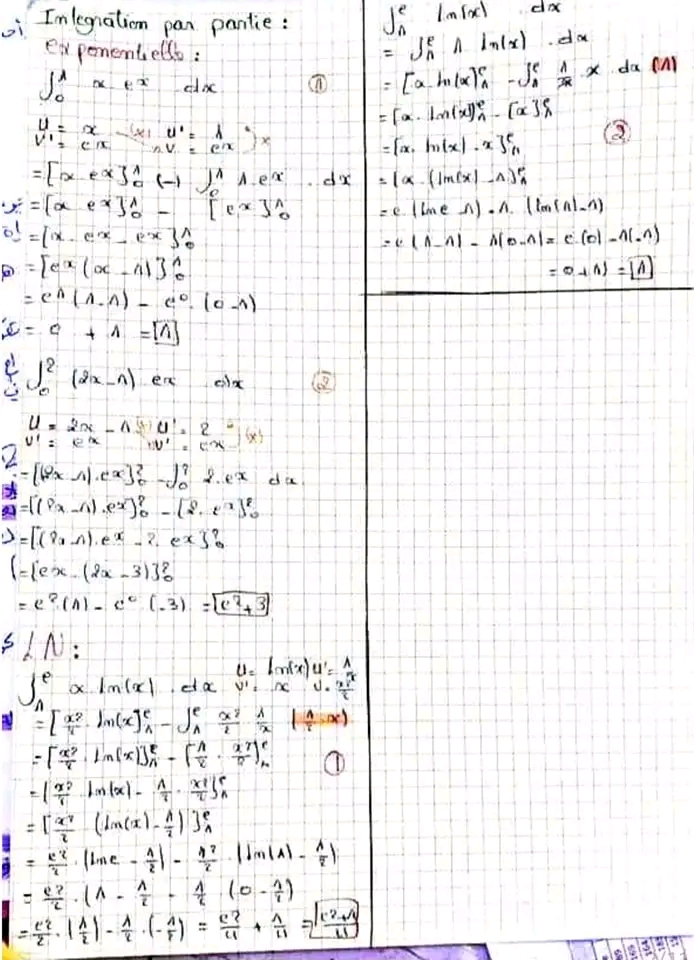 Integration par partie :
exponentielle :
∫₀¹ x eˣ dx ①
U = x U' = 1
V' = eˣ V = eˣ
= [x eˣ]₀¹ (-) ∫₀¹ 1.eˣ . dx
= [x eˣ]₀¹ - [eˣ]₀¹
= [x . eˣ - eˣ]₀¹
= [eˣ (x - 1)]₀¹
= e¹ (1-1) - e⁰ . (0-1)
= 0 + 1 = 1
∫₀² (2x-1) eˣ dx ②
U = 2x - 1 U' = 2
V' = eˣ V' = eˣ
= [(2x-1).eˣ]₀² - ∫₀² 2.eˣ dx
= [(2x-1).eˣ]₀² - [2.eˣ]₀²
= [(2x-1).eˣ - 2.eˣ]₀²
= [eˣ . (2x - 3)]₀²
= e².(1) - e⁰ (-3) = e²+3
LN :
U = ln(x) U' = 1/x
∫₁ᵉ x ln(x) . dx V' = x V = x²/2
= [x²/2 . ln(x)]₁ᵉ - ∫₁ᵉ x²/2 1/x (1/2 . x)
= [x²/2 . ln(x)]₁ᵉ - [1/2 . x²/2]₁ᵉ ①
= [x²/2 ln(x) - 1/2 . x²/2]₁ᵉ
= [x²/2 (ln(x) - 1/2)]₁ᵉ
= e²/2 . (ln e - 1/2) - 1²/2 . (ln(1) - 1/2)
= e²/2 . (1 - 1/2 - 1/2 (0 - 1/2)
= e²/2 . (1/2) - 1/2 . (-1/2) = e²/4 + 1/4 = e²+1/4
∫₁ᵉ ln(x) . dx
= ∫₁ᵉ 1 ln(x) . dx
= [x ln(x)]₁ᵉ - ∫₁ᵉ 1/x x dx (1)
= [x . ln(x)]₁ᵉ - [x]₁ᵉ ②
= [x . ln(x) - x]₁ᵉ
= [x . (ln(x) - 1)]₁ᵉ
= e . (ln e - 1) - 1 . (ln(1) - 1)
= e (1-1) - 1(0-1) = e.(0) - 1(-1)
= 0 + 1) = 1